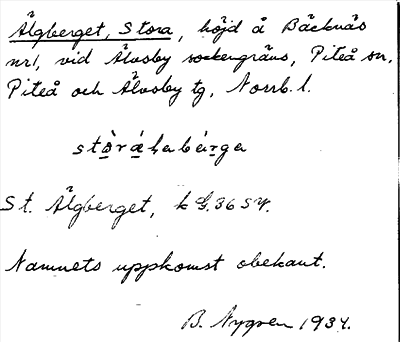 Älgberget, Stora, höjd å Bäcknäs
nr 1, vid Älvsby sockengräns, Piteå sn,
Piteå och Älvsby tg, Norrb. l.
stò̱rá̱ḷabä́ṟga
St. Älgberget, k G. 36 SV.
Namnets uppkomst obekant.
B. Nygren 1934.